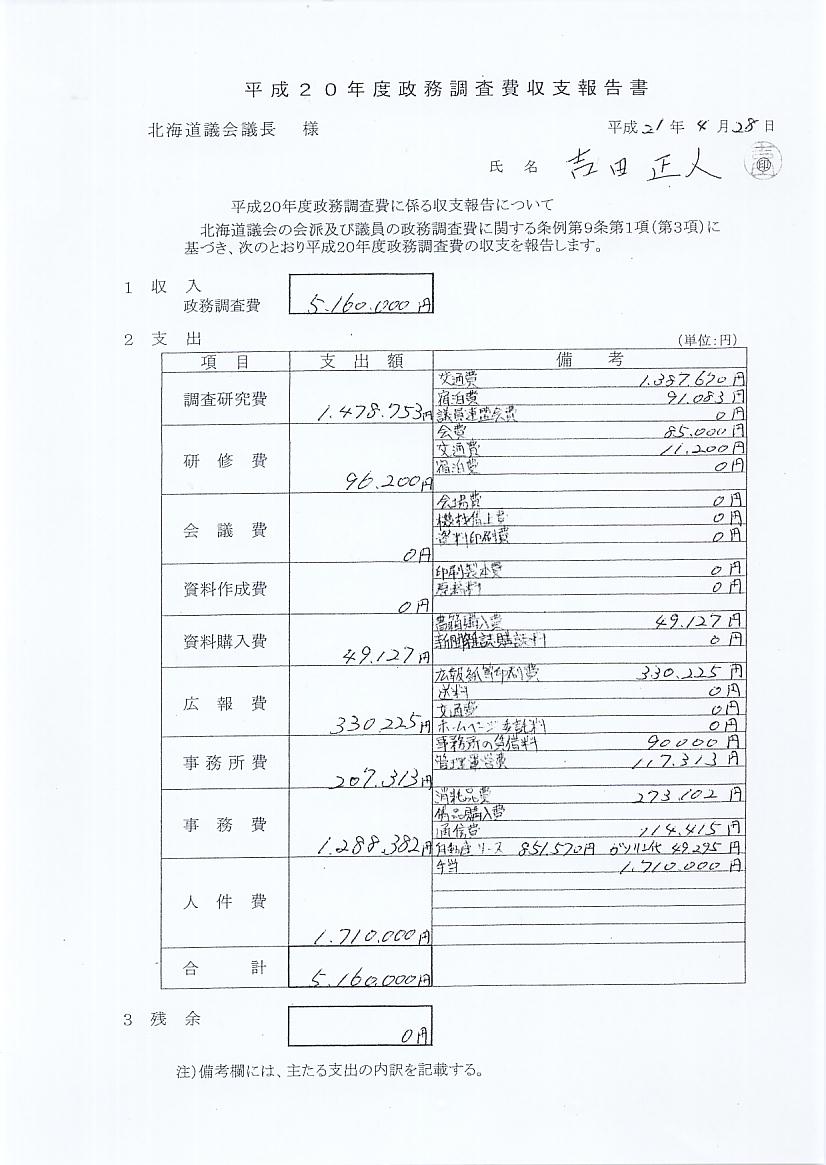 平成20年度政務調査費収支報告書
北海道議会議長 様
平成21年4月28日
氏名 吉田正人 印
平成20年度政務調査費に係る収支報告について
北海道議会の会派及び議員の政務調査費に関する条例第9条第1項(第3項)に
基づき、次のとおり平成20年度政務調査費の収支を報告します。
1 収入
政務調査費 5.160.000円
2 支出 (単位:円)
項目 支出額 備考
調査研究費 1.478.753円
交通費 1.387.670円
宿泊費 91.083円
議員連盟会費 0円
研修費 96.200円
会費 85.000円
交通費 11.200円
宿泊費 0円
会議費 0円
会場費 0円
機材借上費 0円
資料印刷費 0円
資料作成費 0円
印刷製本費 0円
原稿料 0円
資料購入費 49.127円
書籍購入費 49.127円
新聞雑誌購読料 0円
広報費 330225円
広報紙等印刷費 330.225円
送料 0円
交通費 0円
ホームページ委託料 0円
事務所費 207.313円
事務所の賃借料 90000円
管理運営費 117.313円
事務費 1.288.382円
消耗品費 273.102円
備品購入費
通信費 114.415円
自動車リース 851.570円 ガソリン代 49.295円
人件費 1.710.000円
手当 1.710.000円
合計 5.160.000円
3 残余 0円
注)備考欄には、主たる支出の内訳を記載する。